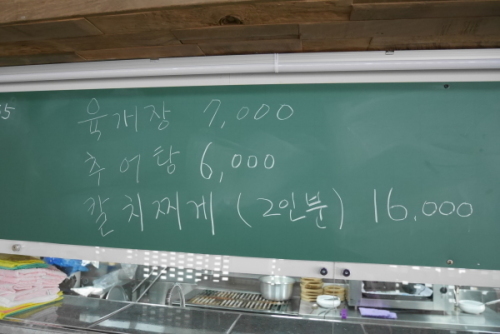 육개장 7,000
추어탕 6,000
갈치찌게 (2인분) 16,000